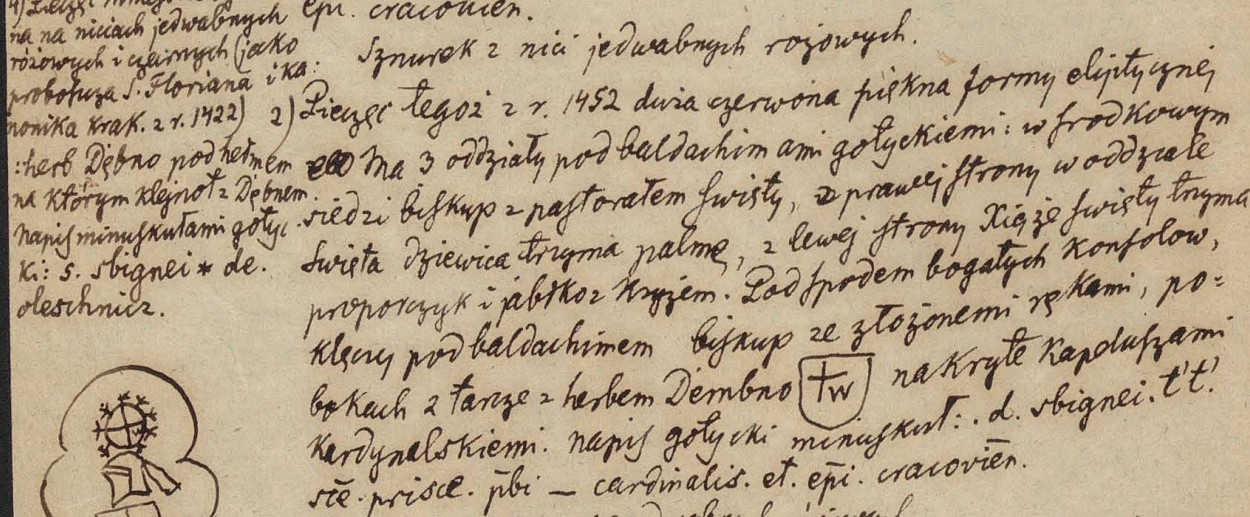 na na niciach jedwabnych
różowych i czarnych (jako
probošcza S. Floriana i ka:
nonika krak. z r. 1422)
:herb Dębno pod hełmem
na którym klejnot z Dębnem.
Napis minuskułami gotyc:
ki: s. sbignei * de.
oleschnicz.
epi. cracovien.
Sznurek z nici jedwabnych rożowych.
2) Pieczęć tegoż z r. 1452 duża czerwona piękna formy eliptycznéj
Ma 3 oddziały pod baldachimami gotyckiemi: w srodkowym
siedzi biskup z pastorałem swięty, z prawej strony w oddziale
swięta dziewica trzyma palmę, z lewej strony Xiąże swięty trzyma
proporczyk i jabłko z krzyżem. Pod spodem bogatych konsolow,
klęczy pod baldachimem biskup ze złożonemi rękami, po=
bokach 2 tarcze z herbem Dembno nakryte kapeluszami
kardynalskiemi. napis gotycki minuskuł: . d. sbignei. t't'.
scē. prisce. p̄bi — cardinalis. et. ēpi. cracoviēn.